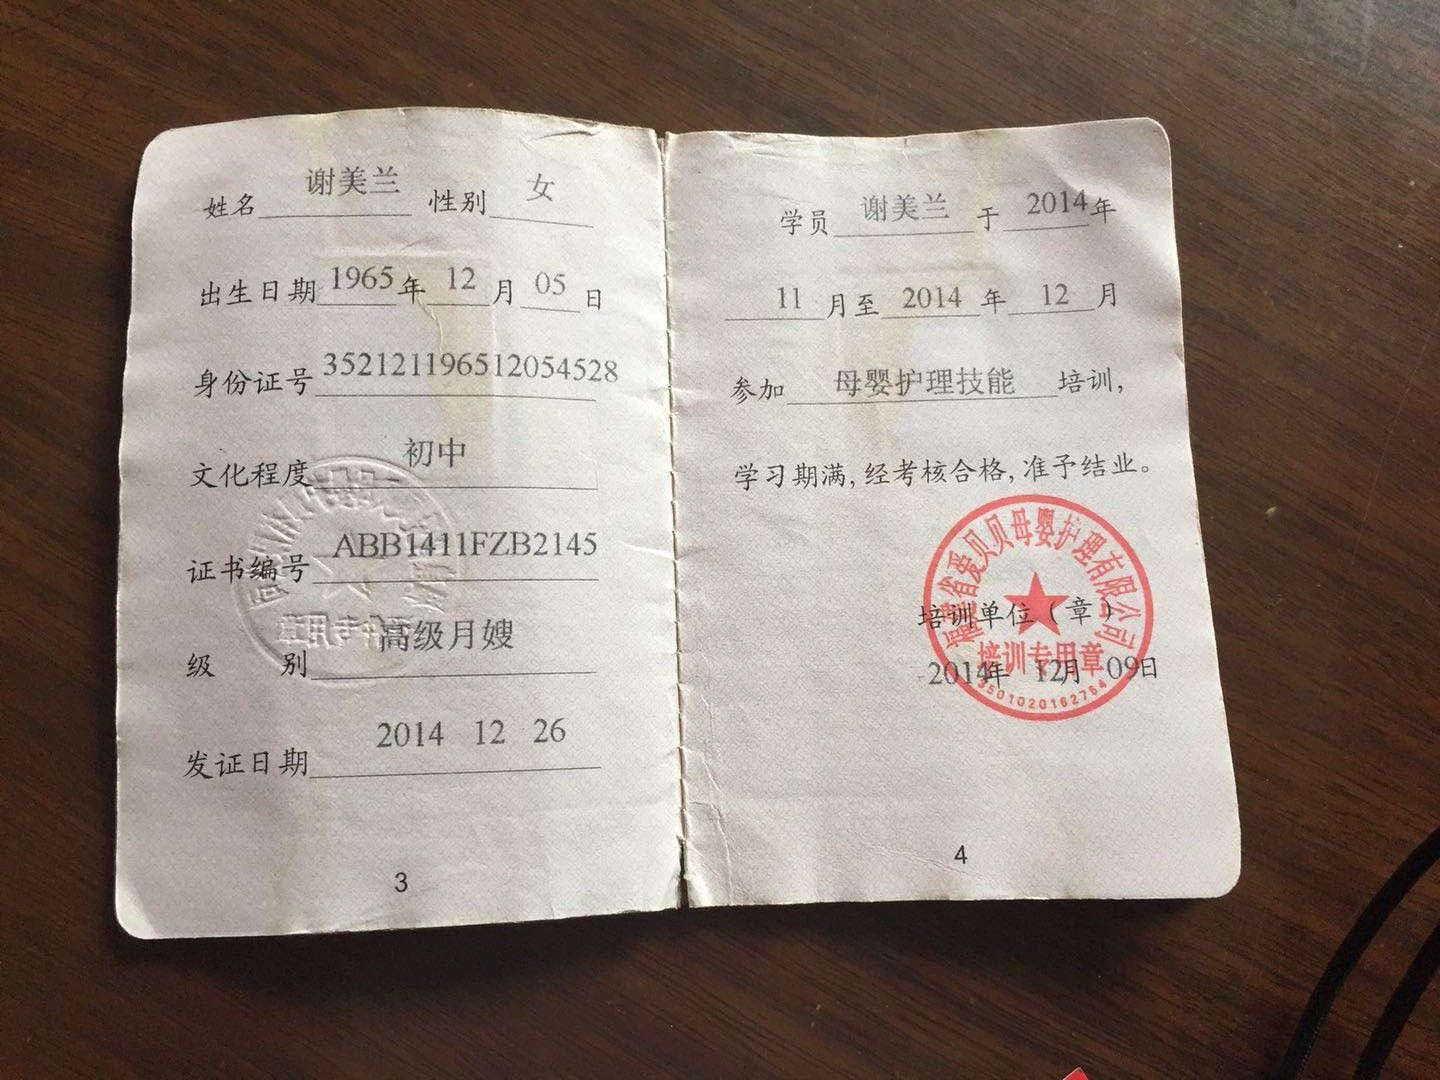 姓名 谢美兰 性别 女
出生日期 1965 年 12 月 05 日
身份证号 352121196512054528
文化程度 初中
证书编号 ABB1411FZB2145
级 别 高级月嫂
发证日期 2014 12 26
3
学员 谢美兰 于 2014 年
11 月至 2014 年 12 月
参加 母婴护理技能 培训，
学习期满，经考核合格，准予结业。
福建省爱贝贝母婴护理有限公司
培训单位（章）
培训专用章
2014年 12月 09日
3501020162764
4